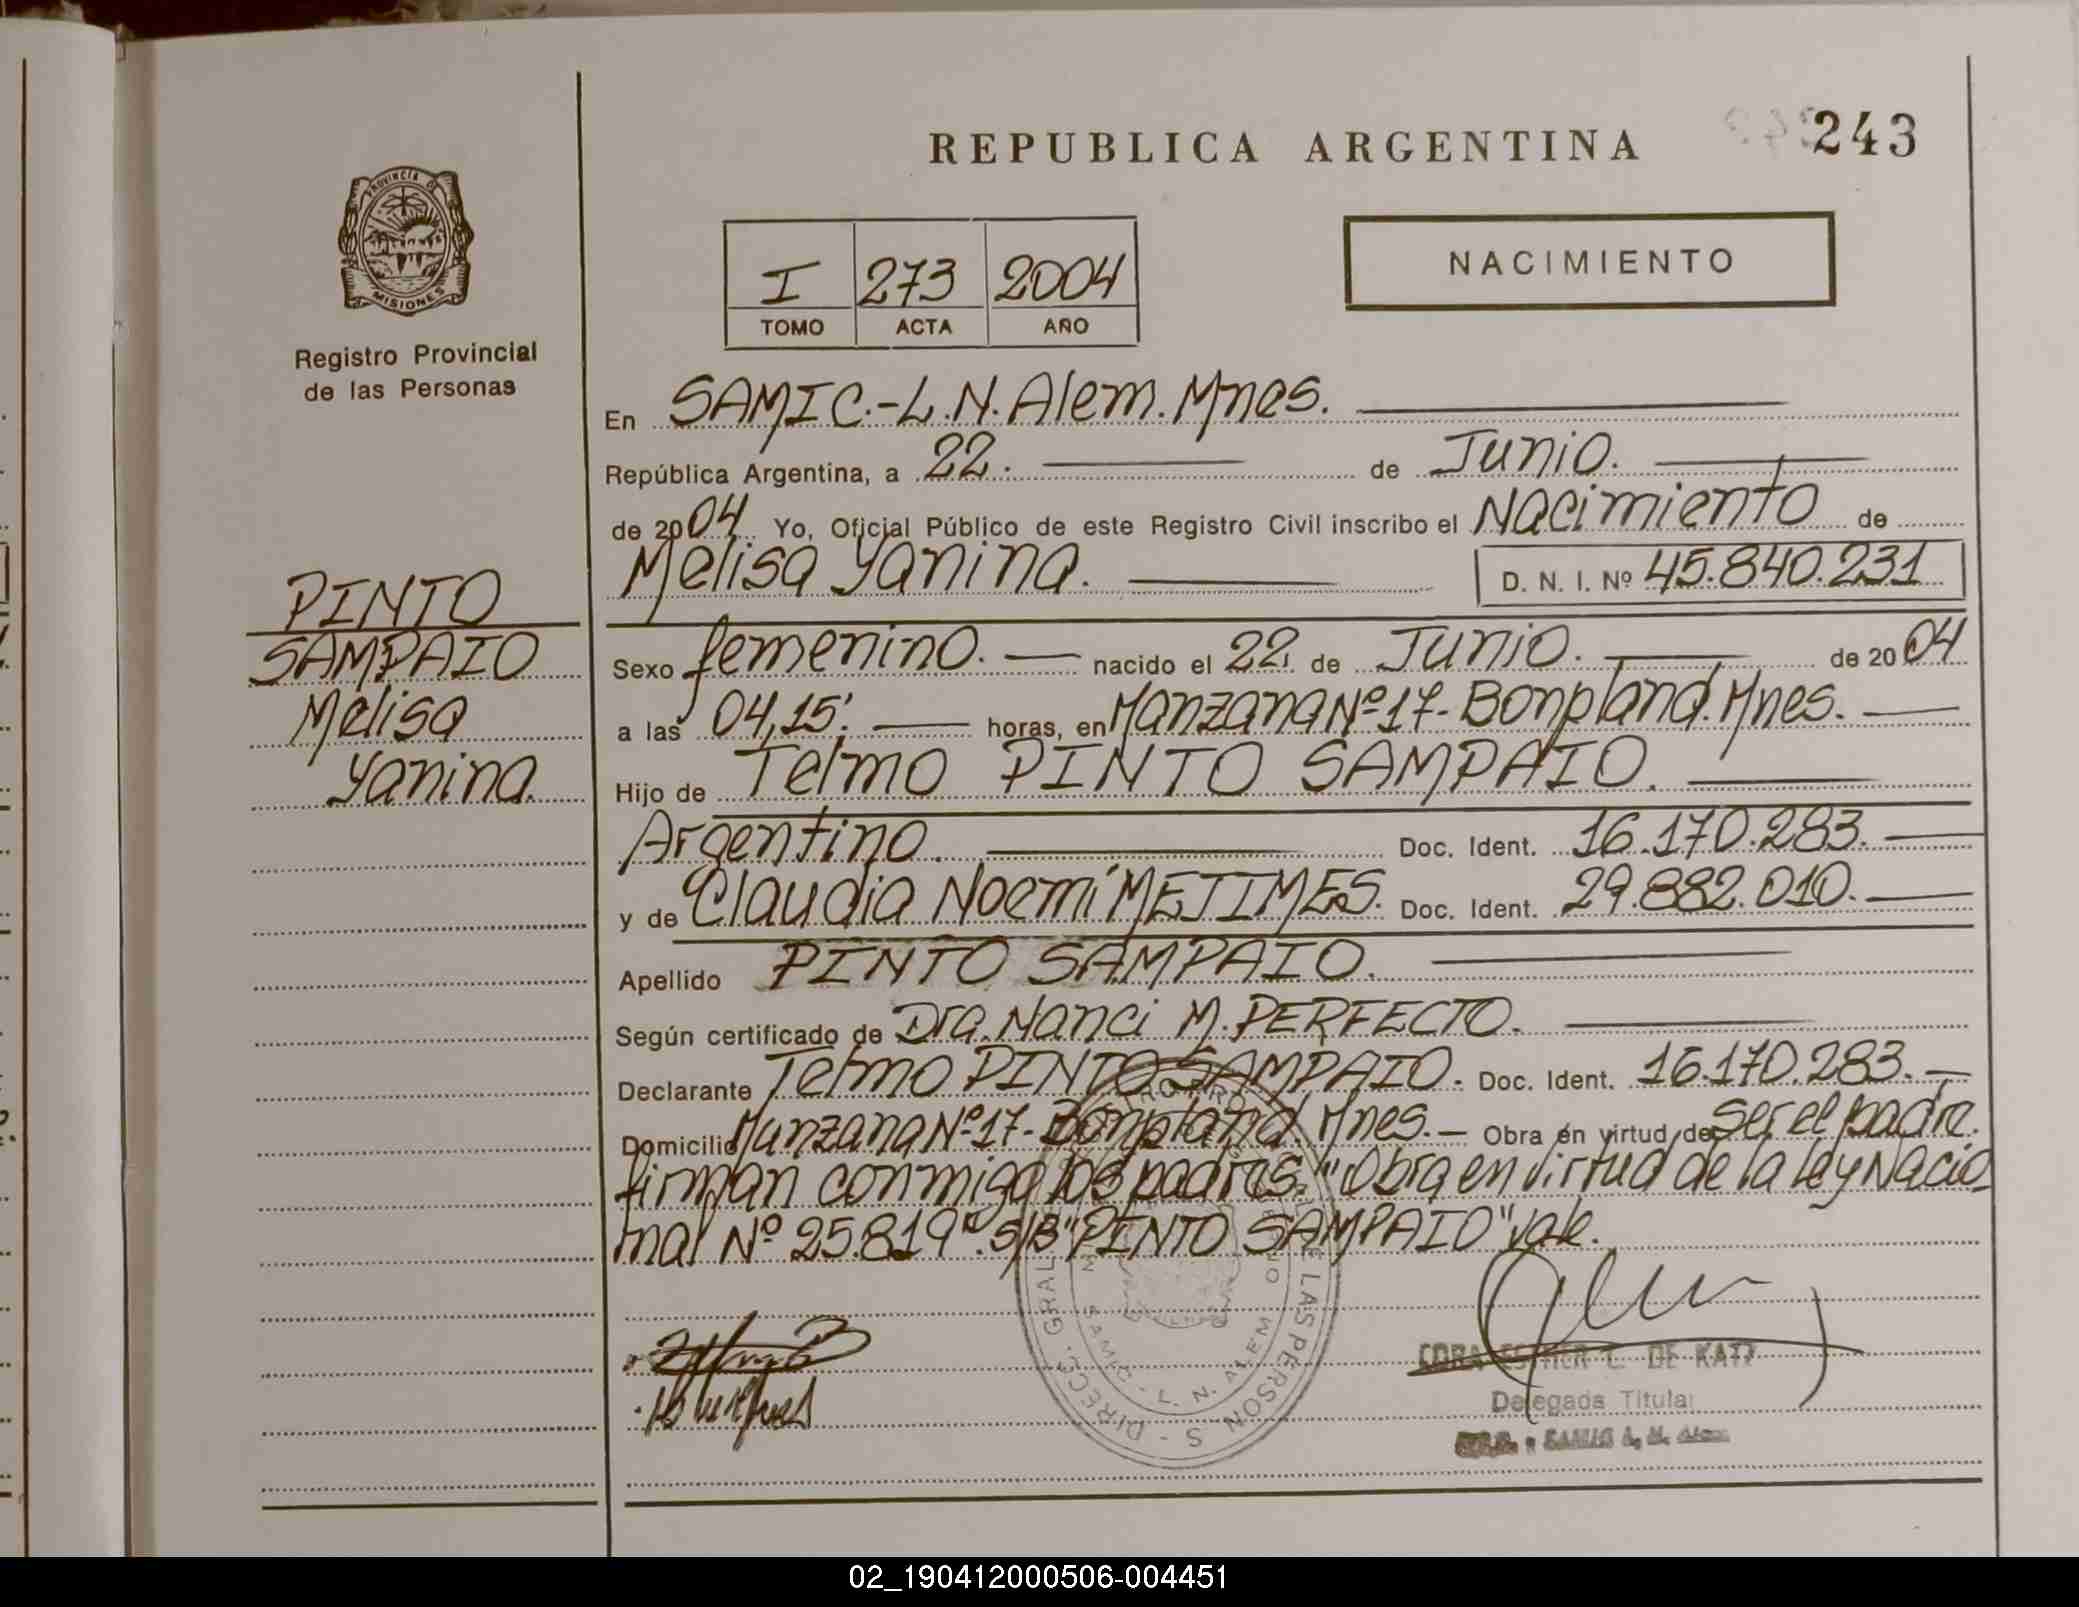 REPUBLICA ARGENTINA
243
PROVINCIA DE
MISIONES
Registro Provincial
de las Personas
I 273 2004
TOMO ACTA AÑO
NACIMIENTO
En SAMIC.-L.N.Alem.Mnes.
República Argentina, a 22. de Junio.
de 2004 Yo, Oficial Público de este Registro Civil inscribo el Nacimiento de
Melisa Yanina. D. N. I. Nº 45.840.231
PINTO
SAMPAIO
Melisa
Yanina.
Sexo femenino. nacido el 22. de Junio. de 2004
a las 04,15'. horas, en Manzana Nº 17- Bonpland. Mnes.
Hijo de Telmo PINTO SAMPAIO.
Argentino. Doc. Ident. 16.170.283.
y de Claudia Noemí METIMES. Doc. Ident. 29.882.010.
Apellido PINTO SAMPAIO.
Según certificado de Dra. Nanci M. PERFECTO.
Declarante Telmo PINTO SAMPAIO. Doc. Ident. 16.170.283.
Domicilio Manzana Nº 17- Bonpland. Mnes. Obra en virtud de ser el padre.
firman conmigo los padres. "Obra en virtud de la ley Nacio-
nal Nº 25.819". S/B "PINTO SAMPAIO" vale.
DE LAS PERSONAS
DIREC. GRAL
SAMIC - L. N. ALEM
DE KATZ
Delegada Titular
02_190412000506-004451